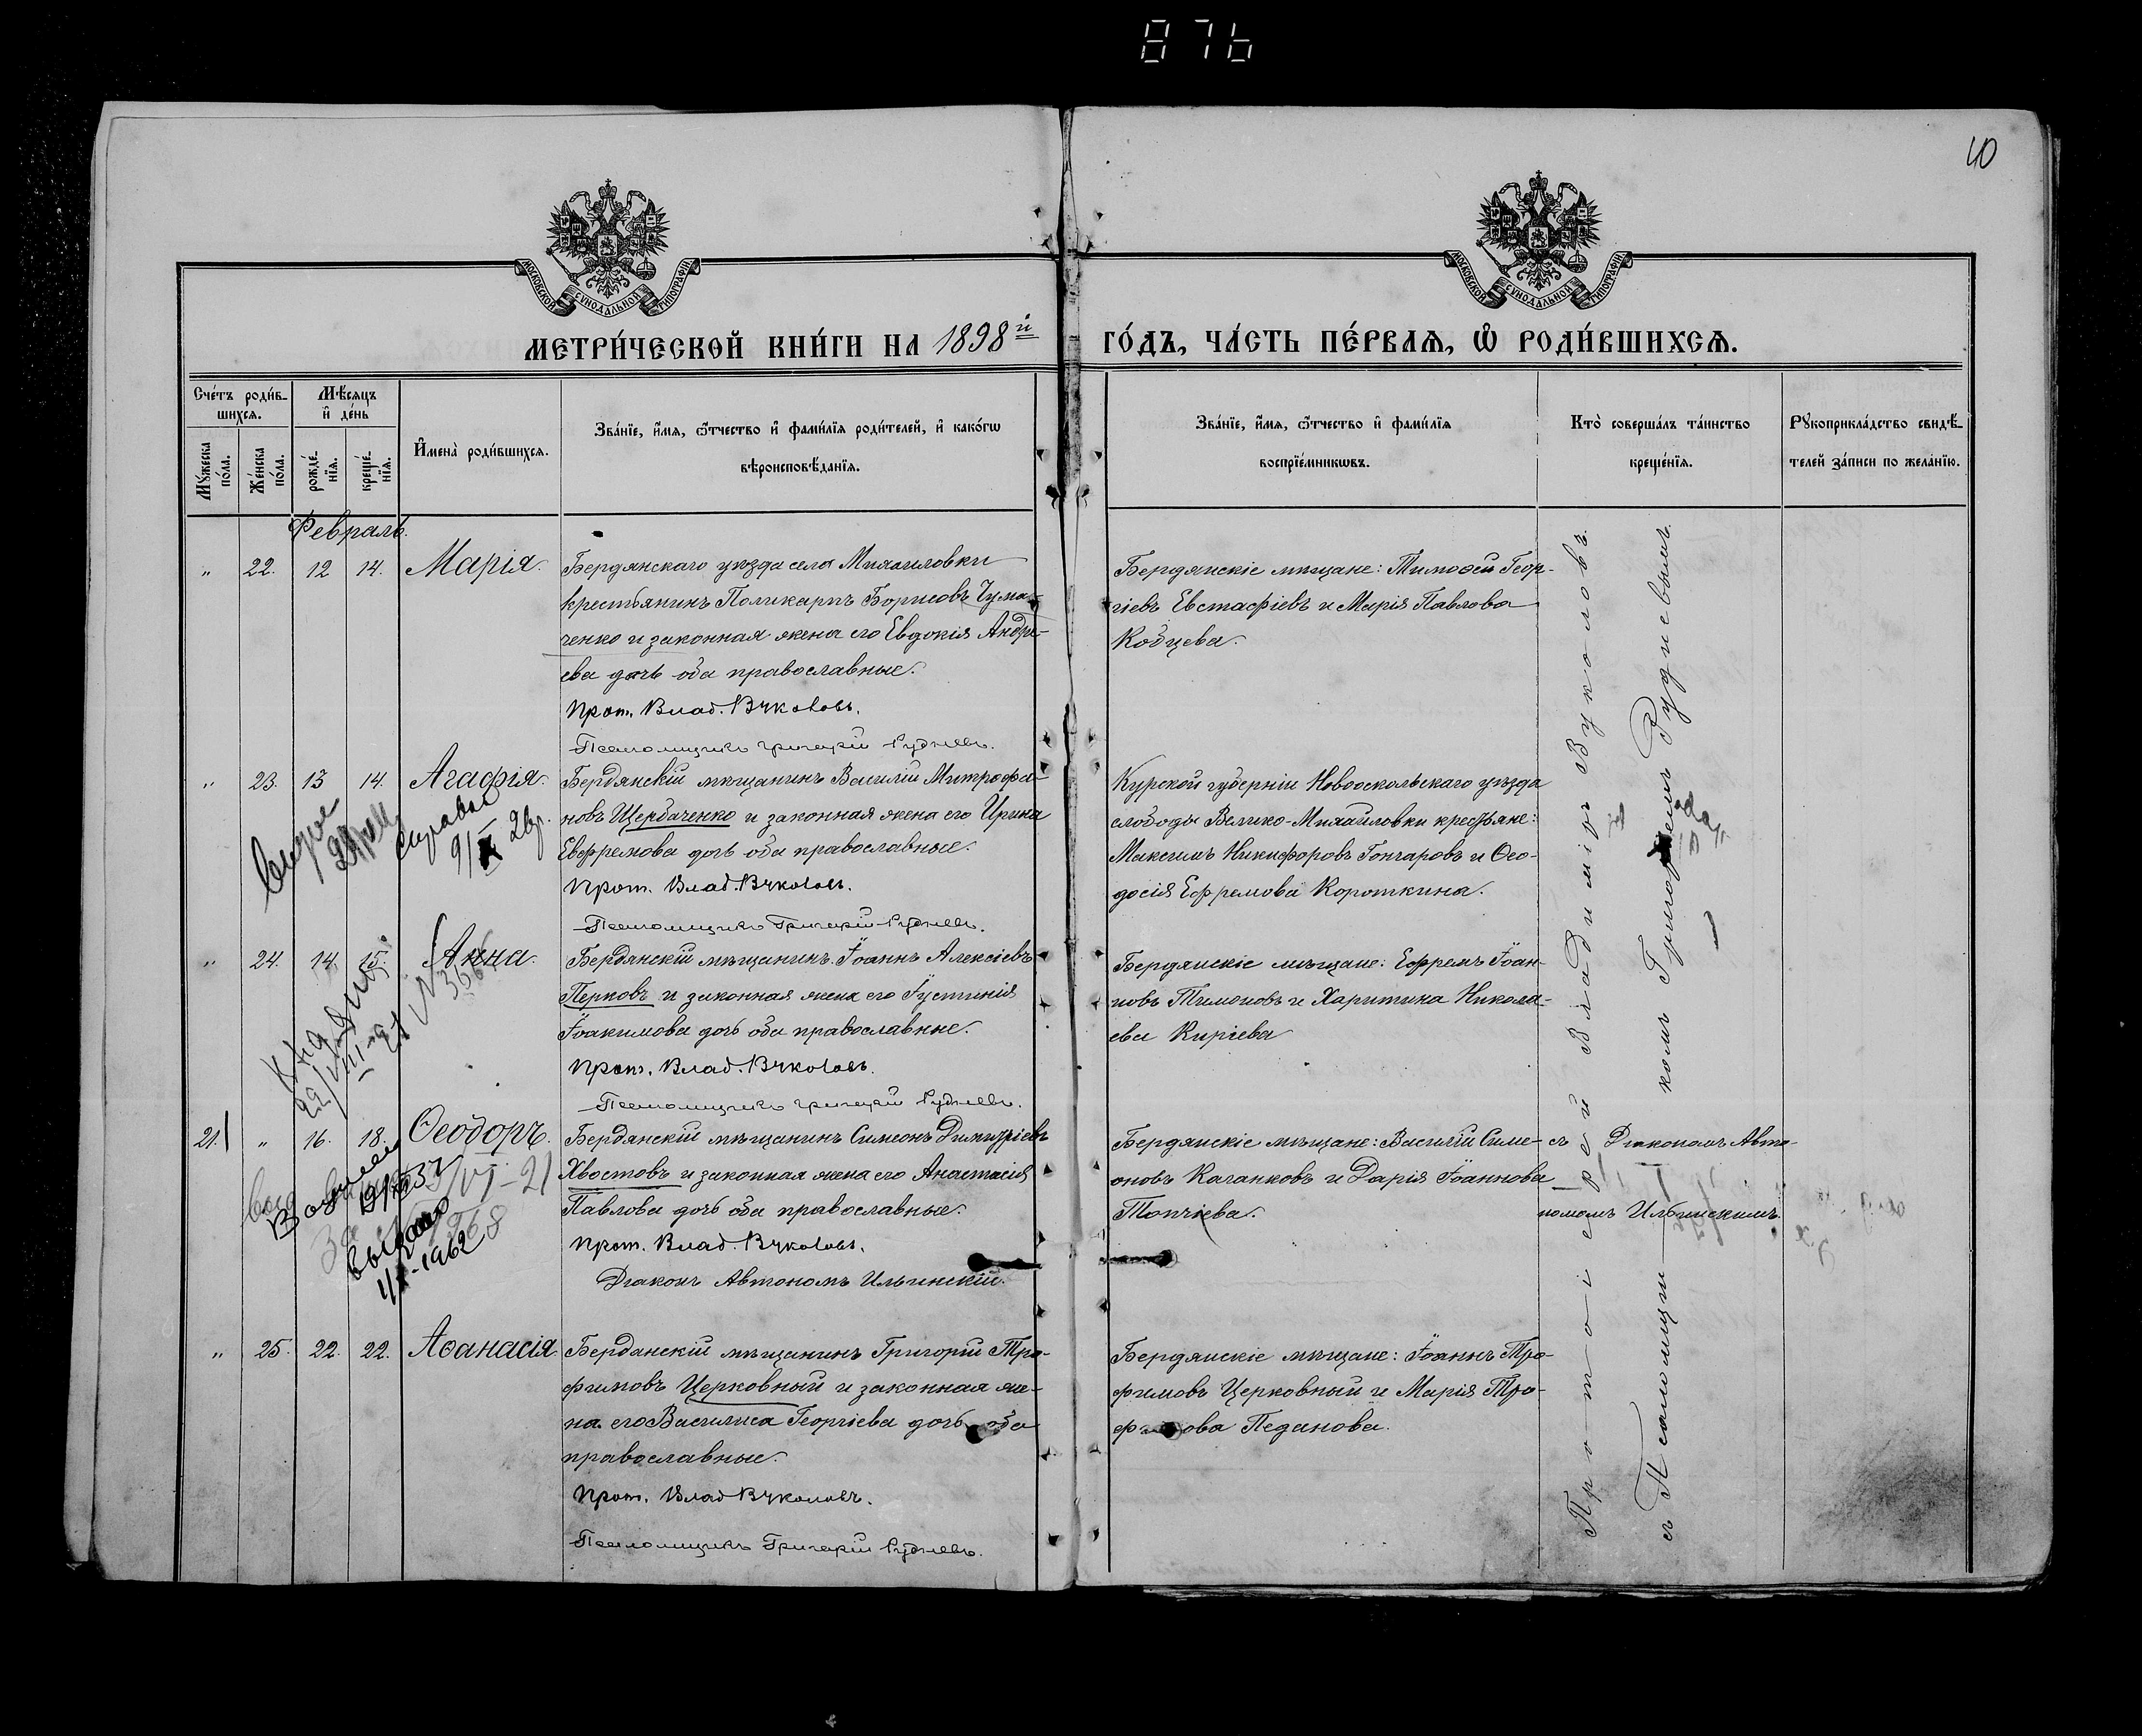 876
40
МОСКОВСКОЙ СѴНОДАЛЬНОЙ ТИПОГРАФІИ
МОСКОВСКОЙ СѴНОДАЛЬНОЙ ТИПОГРАФІИ
МЕТРИ́ЧЕСКОЙ КНИ́ГИ НА 1898й ГО́ДЪ, ЧА́СТЬ ПЕ́РВАѦ, Ѡ РОДИ́ВШИХСѦ.
Сче́тъ роди́в-
шихсѧ.
Мѣ́сѧцъ
и҆ де́нь
Мꙋ́жеска по́ла.
Же́нска по́ла.
рожде́-
нїѧ.
креще́-
нїѧ.
И҆мена̀ роди́вшихсѧ.
Зва́нїе, и҆́мѧ, ѻ҆́тчество и҆ фами́лїѧ роди́телей, и҆ како́гѡ
вѣроисповѣ́данїѧ.
Зва́нїе, и҆́мѧ, ѻ҆́тчество и҆ фами́лїѧ
воспрїе́мникѡвъ.
Кто̀ соверша́лъ та́инство
креще́нїѧ.
Рꙋкоприкла́дство свидѣ́-
телей за́писи по жела́нїю.
Февраль.
" 22. 12 14. Марія.
Бердянскаго уѣзда села Михаиловки
крестьянинъ Поликарпъ Борисовъ Чума-
ченко и законная жена его Евдокія Андре-
ева дочь оба православные.
Прот. Влад. Вуколовъ.
Псаломщикъ Григорій Рудневъ.
Бердянскіе мѣщане: Тимоѳей Геор-
гіевъ Евстафіевъ и Марія Павлова
Кобцева.
" 23. 13 14. Агафія.
Бердянскій мѣщанинъ Василій Митрофа-
новъ Щербаченко и законная жена его Ирина
Евфремова дочь оба православные.
Прот. Влад. Вуколовъ.
Псаломщикъ Григорій Рудневъ.
Курской губерніи Новооскольскаго уѣзда
слободы Велико-Михайловки крестьяне:
Максимъ Никифоровъ Гончаровъ и Ѳео-
досія Ефремова Короткина.
" 24. 14. 15. Анна.
Бердянскій мѣщанинъ Іоаннъ Алексіевъ
Перковъ и законная жена его Іустинія
Іоакимова дочь оба православные.
Прот. Влад. Вуколовъ.
Псаломщикъ Григорій Рудневъ.
Бердянскіе мѣщане: Ефремъ Іоан-
новъ Тимоновъ и Харитина Никола-
ева Киріева
22/VIII-21
21. " 16. 18. Ѳеодоръ.
Бердянскій мѣщанинъ Симеонъ Димитріевъ
Хвостовъ и законная жена его Анастасія
Павлова дочь оба православные.
Прот. Влад. Вуколовъ.
Діаконъ Автономъ Ильинскій.
Бердянскіе мѣщане: Василій Симе-
оновъ Каганковъ и Дарія Іоаннова
Топчіева.
съ Діакономъ Авто-
номомъ Ильинскимъ.
1962
" 25. 22. 22. Аѳанасія.
Бердянскій мѣщанинъ Григорій Тро-
фимовъ Церковный и законная же-
на его Василиса Георгіева дочь оба
православные.
Прот. Влад Вуколовъ.
Псаломщикъ Григорій Рудневъ.
Бердянскіе мѣщане: Іоаннъ Тро-
фимовъ Церковный и Марія Тро-
фимова Педанова.
Протоіерей Владиміръ Вуколовъ.
съ Псаломщикомъ Григоріемъ Рудневымъ.